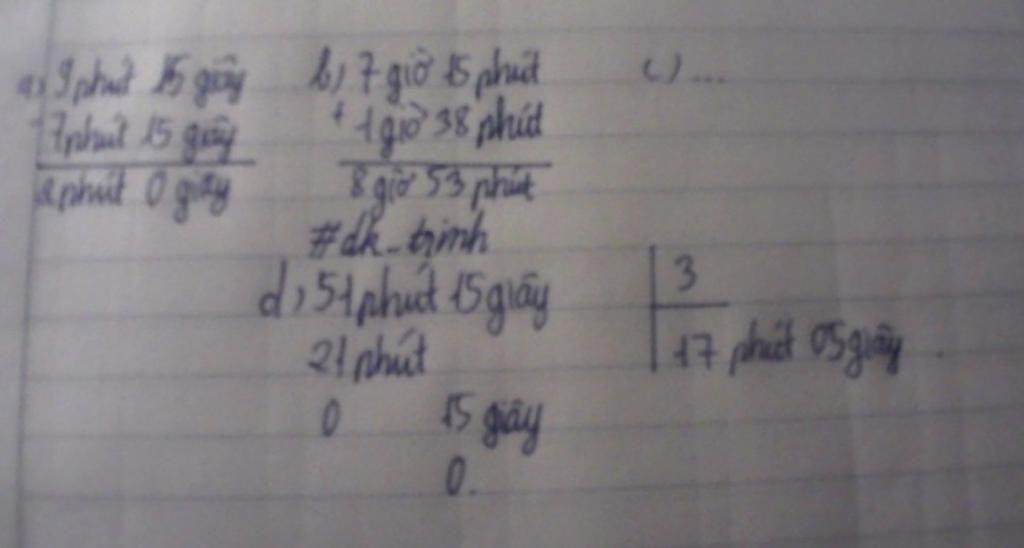 a) 9 phút 15 giây b) 7 giờ 15 phút c) ...
- 7 phút 15 giây + 1 giờ 38 phút
2 phút 0 giây 8 giờ 53 phút
#dk_trinh
d) 51 phút 15 giây 3
21 phút 17 phút 05 giây
0 15 giây
0.